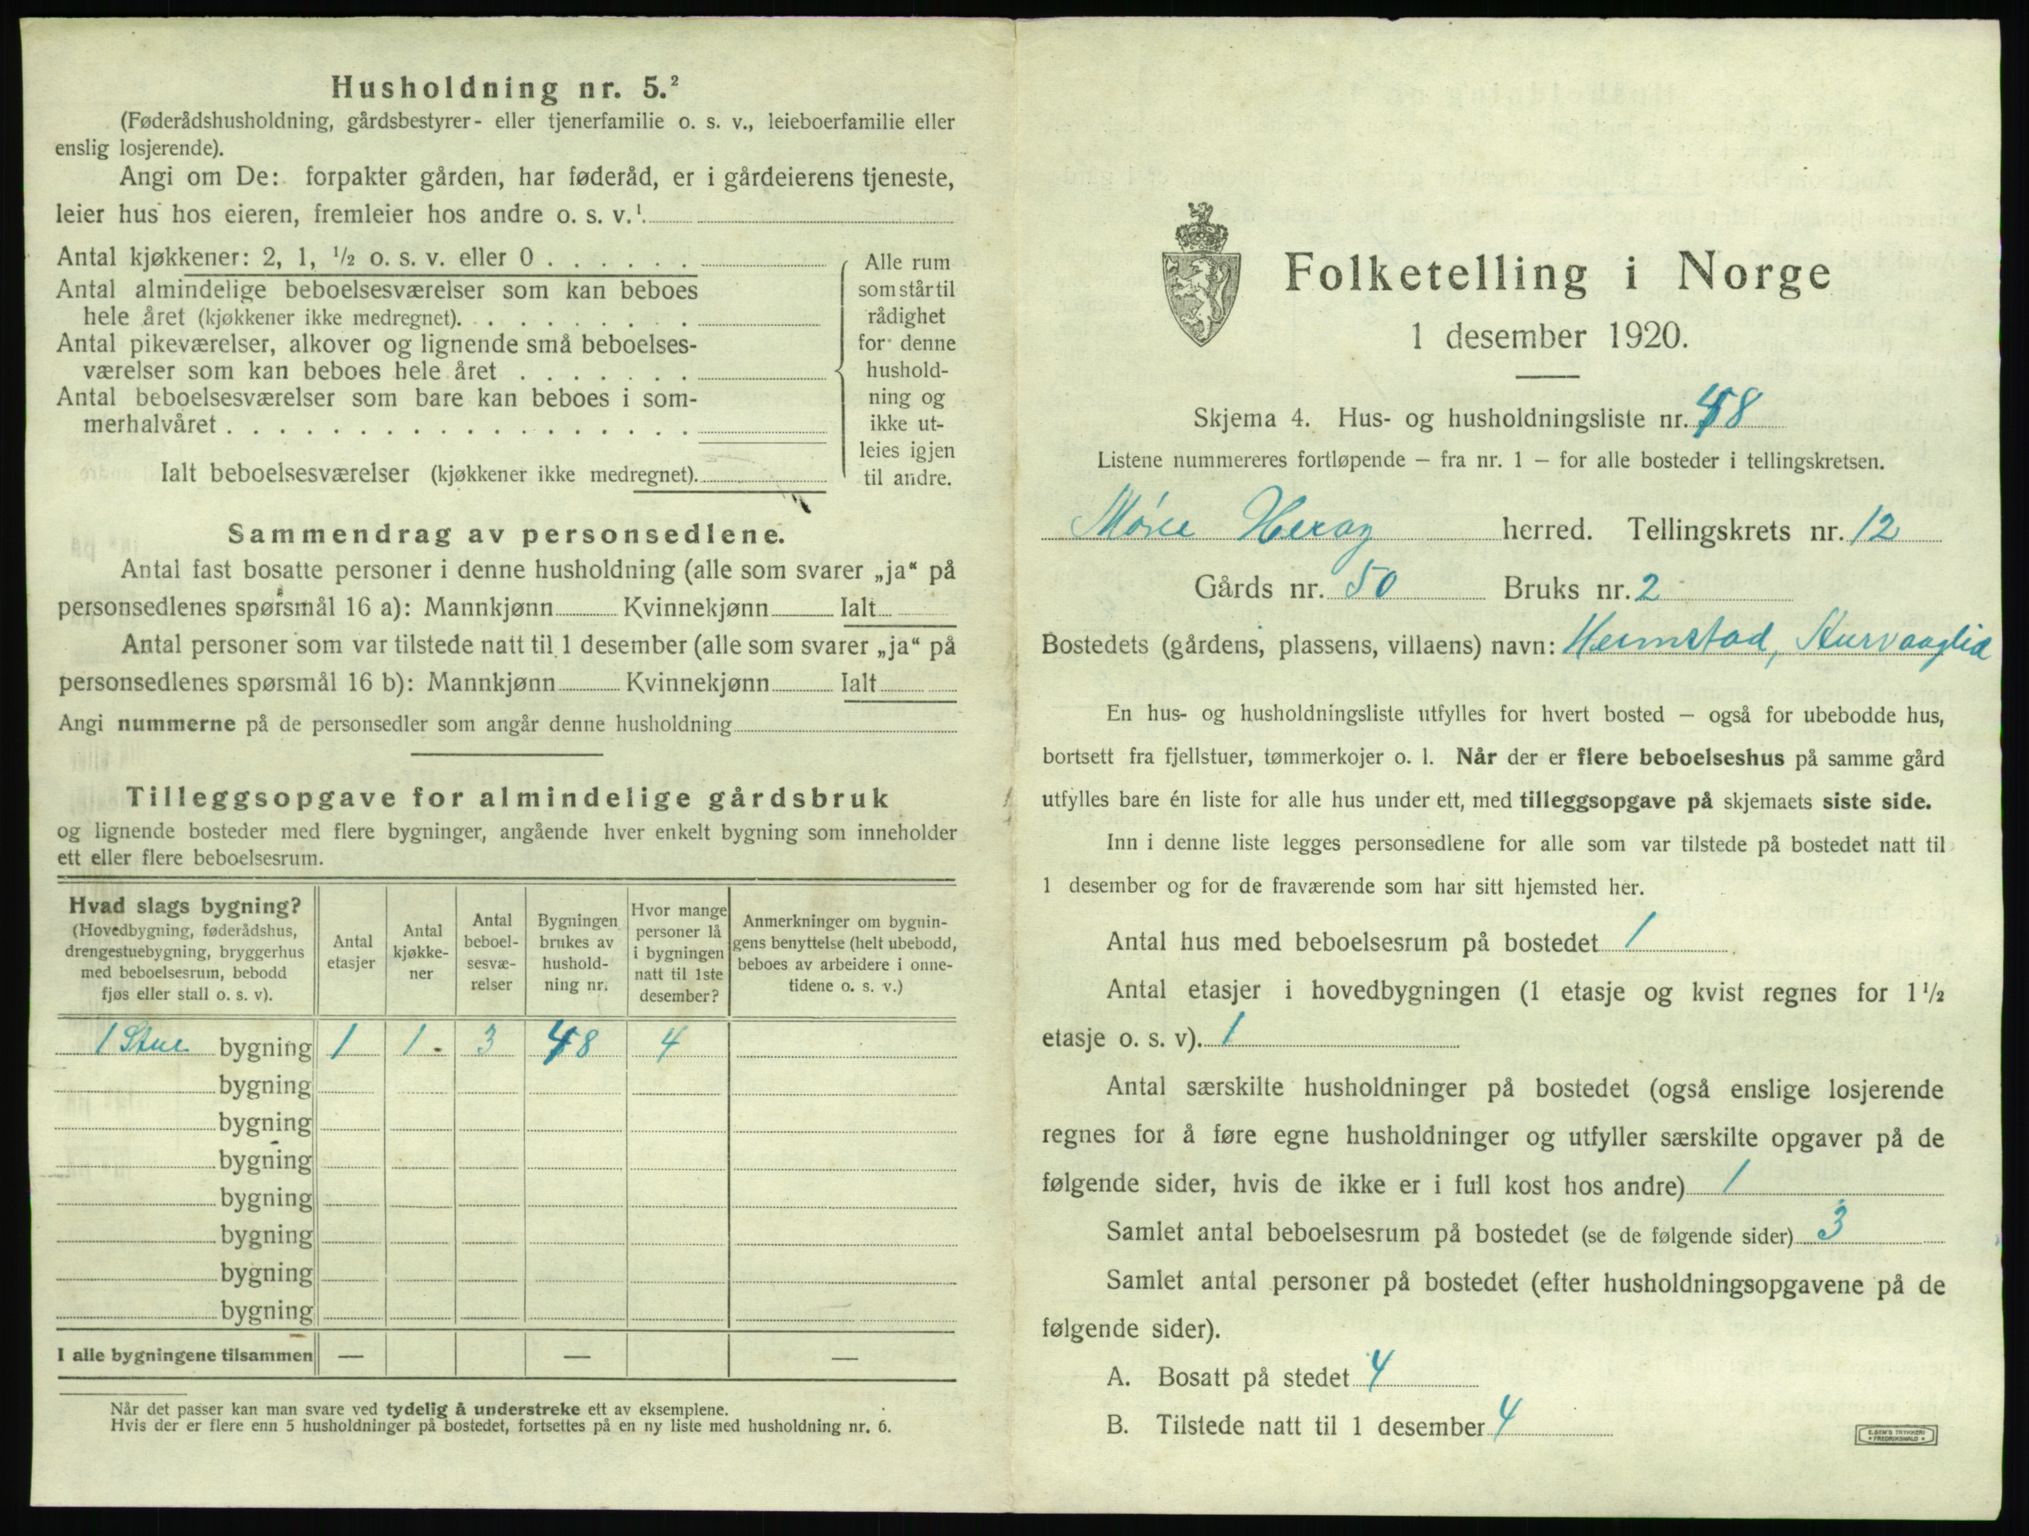 Husholdning nr. 5.²
(Føderådshusholdning, gårdsbestyrer- eller tjenerfamilie o. s. v., leieboerfamilie eller
enslig losjerende).
Angi om De: forpakter gården, har føderåd, er i gårdeierens tjeneste,
leier hus hos eieren, fremleier hos andre o. s. v.¹
Antal kjøkkener: 2, 1, ½ o. s. v. eller 0
Antal almindelige beboelsesværelser som kan beboes
hele året (kjøkkener ikke medregnet).
Antal pikeværelser, alkover og lignende små beboelses-
værelser som kan beboes hele året
Antal beboelsesværelser som bare kan beboes i som-
merhalvåret
Ialt beboelsesværelser (kjøkkener ikke medregnet).
Alle rum
som står til
rådighet
for denne
hushold-
ning og
ikke ut-
leies igjen
til andre.
Sammendrag av personsedlene.
Antal fast bosatte personer i denne husholdning (alle som svarer „ja“ på
personsedlenes spørsmål 16 a): Mannkjønn Kvinnekjønn Ialt
Antal personer som var tilstede natt til 1 desember (alle som svarer „ja“ på
personsedlenes spørsmål 16 b): Mannkjønn Kvinnekjønn Ialt
Angi nummerne på de personsedler som angår denne husholdning
Tilleggsopgave for almindelige gårdsbruk
og lignende bosteder med flere bygninger, angående hver enkelt bygning som inneholder
ett eller flere beboelsesrum.
Hvad slags bygning?
(Hovedbygning, føderådshus,
drengestuebygning, bryggerhus
med beboelsesrum, bebodd
fjøs eller stall o. s. v).
Antal
etasjer
Antal
kjøkke-
ner
Antal
beboel-
sesvæ-
relser
Bygningen
brukes av
hushold-
ning nr.
Hvor mange
personer lå
i bygningen
natt til 1ste
desember?
Anmerkninger om bygnin-
gens benyttelse (helt ubebodd,
beboes av arbeidere i onne-
tidene o. s. v.)
1 Stue bygning 1 1 3 48 4
bygning
bygning
bygning
bygning
bygning
bygning
bygning
I alle bygningene tilsammen — — —
Når det passer kan man svare ved tydelig å understreke ett av eksemplene.
Hvis der er flere enn 5 husholdninger på bostedet, fortsettes på en ny liste med husholdning nr. 6.
Folketelling i Norge
1 desember 1920.
Skjema 4. Hus- og husholdningsliste nr. 48
Listene nummereres fortløpende – fra nr. 1 – for alle bosteder i tellingskretsen.
Møre Herøy herred. Tellingskrets nr. 12
Gårds nr. 50 Bruks nr. 2
Bostedets (gårdens, plassens, villaens) navn: Heimstad, Kurvaaglid
En hus- og husholdningsliste utfylles for hvert bosted – også for ubebodde hus,
bortsett fra fjellstuer, tømmerkojer o. l. Når der er flere beboelseshus på samme gård
utfylles bare én liste for alle hus under ett, med tilleggsopgave på skjemaets siste side.
Inn i denne liste legges personsedlene for alle som var tilstede på bostedet natt til
1 desember og for de fraværende som har sitt hjemsted her.
Antal hus med beboelsesrum på bostedet 1
Antal etasjer i hovedbygningen (1 etasje og kvist regnes for 1½
etasje o. s. v). 1
Antal særskilte husholdninger på bostedet (også enslige losjerende
regnes for å føre egne husholdninger og utfyller særskilte opgaver på de
følgende sider, hvis de ikke er i full kost hos andre) 1
Samlet antal beboelsesrum på bostedet (se de følgende sider) 3
Samlet antal personer på bostedet (efter husholdningsopgavene på de
følgende sider).
A. Bosatt på stedet 4
B. Tilstede natt til 1 desember 4
E. SEM'S TRYKKERI
FREDRIKSHALD